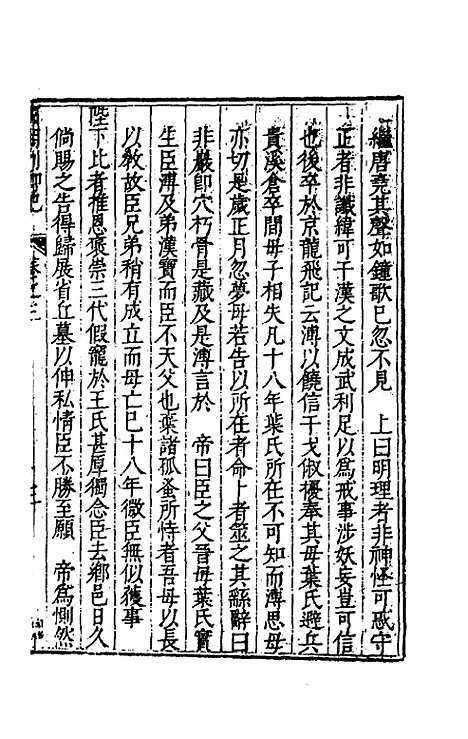 繼唐堯其聲如鐘歌已忽不見　上曰明理者非神怪可惑守
正者非讖緯可干漢之文成武利足以為戒事涉妖妄豈可信
也後卒於京龍飛記云溥以饒信干戈俶擾奉其母葉氏避兵
貴溪倉卒間母子相失凡十八年葉氏所在不可知而溥思母
亦切是歲正月忽夢母若告以所在者命卜者筮之其繇辭曰
非巖即穴朽骨是藏及是溥言於　帝曰臣之父晉母葉氏實
生臣溥及弟漢寶而臣不天父也葉諸孤蚤所恃者吾母以長
以教故臣兄弟稍有成立而母亡已十八年微臣無似獲事
陛下比者推恩褒崇三代假寵於王氏甚厚獨念臣去鄉邑日久
倘賜之告得歸展省丘墓以伸私情臣不勝至願　帝為惻然
卷之三